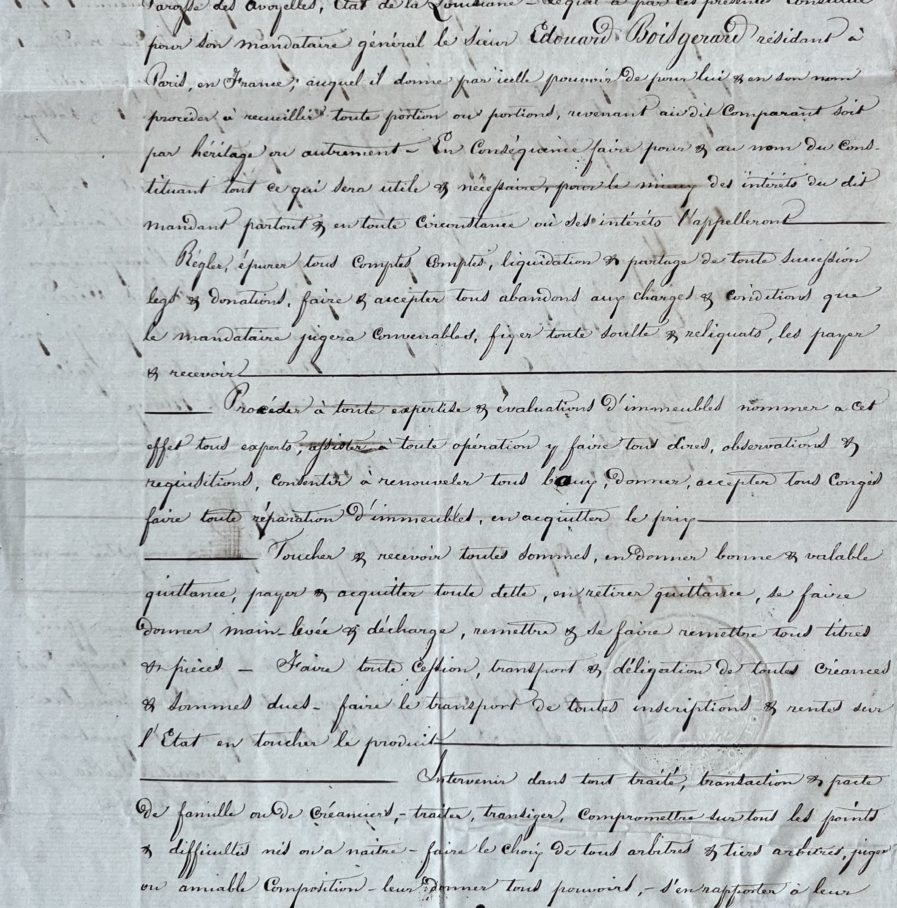 Paroisse des Avoyelles, Etat de la Louisiane – Lequel a par ces présentes constitué
pour son mandataire général le sieur Edouard Boisgerard résidant à
Paris, en France, auquel il donne par icelle pouvoir de pour lui & en son nom
procéder à recueillir toute portion ou portions, revenant audit Comparant soit
par héritage ou autrement – En Conséquence faire pour & au nom du Cons-
tituant tout ce qui sera utile & nécessaire, pour le mieux des intérêts du dit
mandant partout & en toute circonstance où ses intérêts l'appelleront
Régler, épurer tous Comptes Comptes, liquidation & partage de toute succession
legs & donations, faire & accepter tous abandons aux charges & conditions que
le mandataire jugera convenables, fixer toute soulte & reliquats, les payer
& recevoir
Procéder à toute expertise & évaluations d'immeubles nommer a cet
effet tous experts, assister à toute opération y faire tous dires, observations &
requisitions, consentir à renouveler tous baux, donner, accepter tous Congés
faire toute réparation d'immeubles, en acquitter le prix
Toucher & recevoir toutes sommes, en donner bonne & valable
quittance, payer & acquitter toute dette, en retirer quittance, se faire
donner main-levée & décharge, remettre & se faire remettre tous titres
& pièces – Faire toute Cession, transport & déligation de toutes Créances
& sommes dues – faire le transport de toutes inscriptions & rentes sur
l'Etat en toucher le produit
Intervenir dans tout traité, transaction & pacte
de famille ou de Créanciers, – traiter, transiger, Compromettre sur tous les points
& difficultés nés ou a naître – faire le choix de tous arbitres & tiers arbitres, juger
ou amiable Composition – leur donner tous pouvoirs, – s'en rapporter à leur